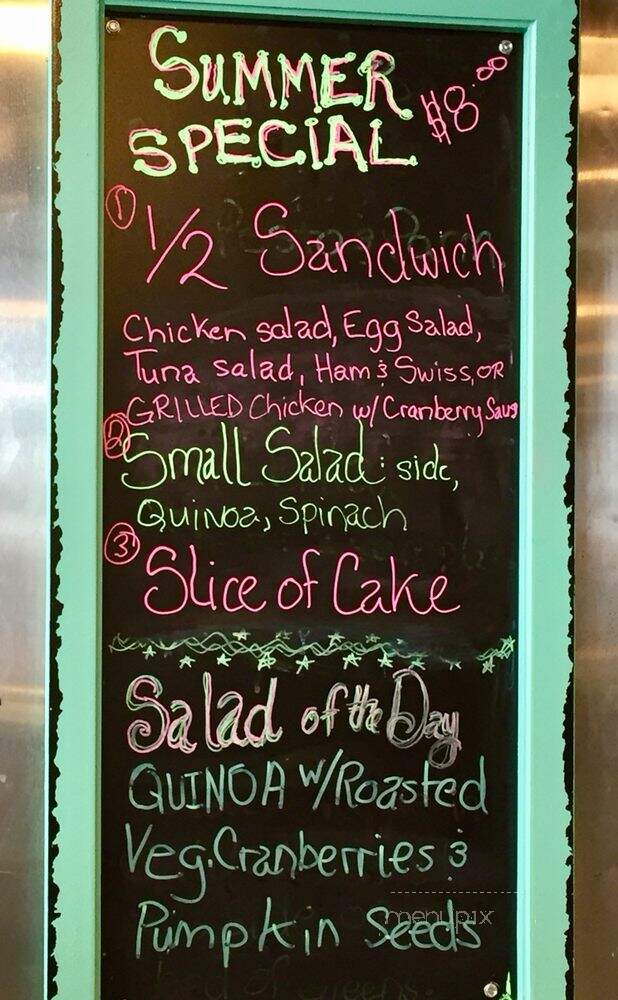 SUMMER
SPECIAL $8.00
1 1/2 Sandwich
Chicken salad, Egg Salad,
Tuna salad, Ham & Swiss, OR
GRILLED Chicken w/ Cranberry Saus
2 Small Salad: side,
Quinoa, Spinach
3 Slice of Cake
Salad of the Day
QUINOA w/Roasted
Veg. Cranberries &
Pumpkin Seeds
menupix